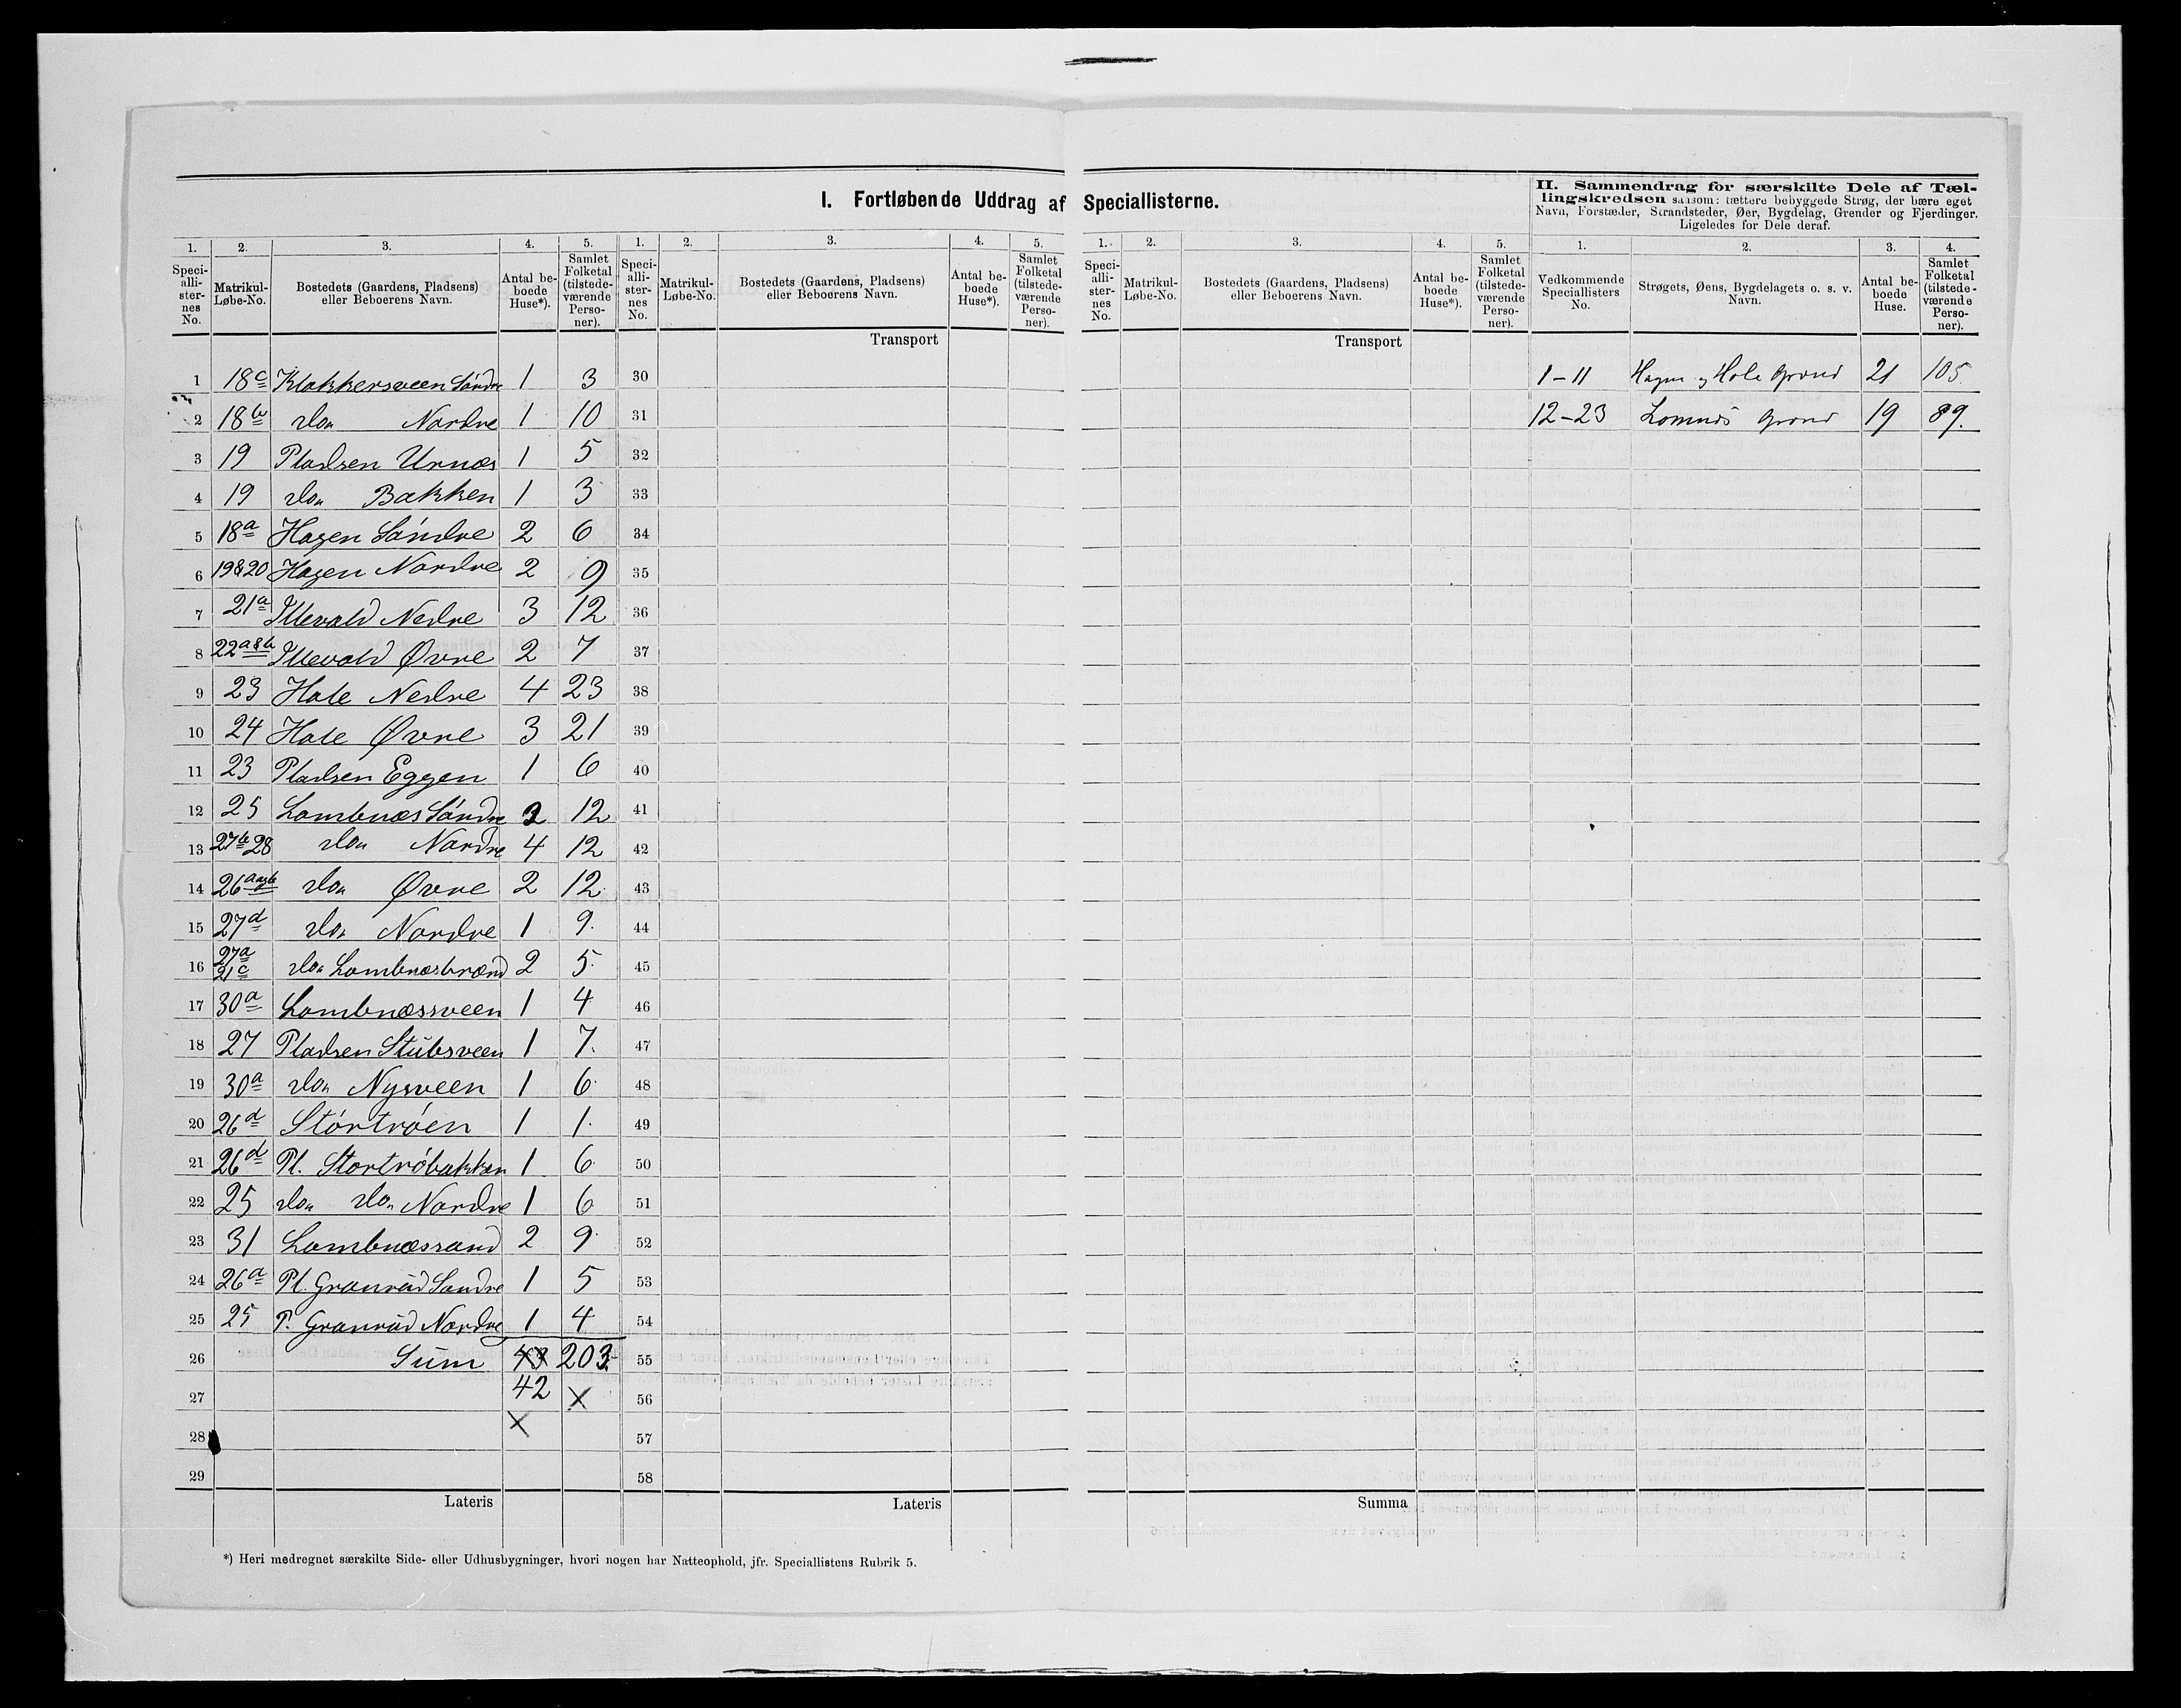 I. Fortløbende Uddrag af Speciallisterne.
II. Sammendrag for særskilte Dele af Tæl-
lingskredsen saasom: tættere bebyggede Strøg, der bære eget
Navn, Forstæder, Strandsteder, Øer, Bygdelag, Grender og Fjerdinger.
Ligeledes for Dele deraf.
1. 2. 3. 4. 5. 1. 2. 3. 4. 5. 1. 2. 3. 4. 5. 1. 2. 3. 4.
Speci-alli-ster-nes No. Matrikul-Løbe-No. Bostedets (Gaardens, Pladsens) eller Beboerens Navn. Antal be-boede Huse*). Samlet Folketal (tilstede-værende Perso-ner).
Speci-alli-ster-nes No. Matrikul-Løbe-No. Bostedets (Gaardens, Pladsens) eller Beboerens Navn. Antal be-boede Huse*). Samlet Folketal (tilstede-værende Perso-ner).
Speci-alli-ster-nes No. Matrikul-Løbe-No. Bostedets (Gaardens, Pladsens) eller Beboerens Navn. Antal be-boede Huse*). Samlet Folketal (tilstede-værende Perso-ner).
Vedkommende Speciallisters No. Strøgets, Øens, Bygdelagets o. s. v. Navn. Antal be-boede Huse. Samlet Folketal (tilstede-værende Perso-ner).
Transport Transport
1 18c Klokkersveen Søndre 1 3 30 1-11 Hagen og Hole Grend 21 105.
2 18b do Nordre 1 10 31 12-23 Lomnes Grend 19 89.
3 19 Pladsen Urnæs 1 5 32
4 19 do Bakken 1 3 33
5 18a Hagen Søndre 2 6 34
6 19&20 Hagen Nordre 2 9 35
7 21a Illevold Nedre 3 12 36
8 22a&b Illevold Øvre 2 7 37
9 23 Hole Nedre 4 23 38
10 24 Hole Øvre 3 21 39
11 23 Pladsen Eggen 1 6 40
12 25 Lombnæs Søndre 2 12 41
13 27b 28 do Nordre 4 12 42
14 26a og b do Øvre 2 12 43
15 27d do Nordre 1 9. 44
16 27a 21c do Lombnæsbrænd 2 5. 45
17 30a Lombnæssveen 1 4 46
18 27 Pladsen Stubsveen 1 7. 47
19 30a do Nysveen 1 6 48
20 26d Stórtróen 1 1. 49
21 26d Pl. Stortróbakken 1 6 50
22 25 do do Nordre 1 6 51
23 31 Lombnæsrand 2 9 52
24 26a Pl. Granrud Søndre 1 5 53
25 25 P. Granrud Nordre 1 4 54
26 Sum 43 203. 55
27 42 X 56
28 X 57
29 58
Lateris Lateris Summa
*) Heri medregnet særskilte Side- eller Udhusbygninger, hvori nogen har Natteophold, jfr. Speciallistens Rubrik 5.